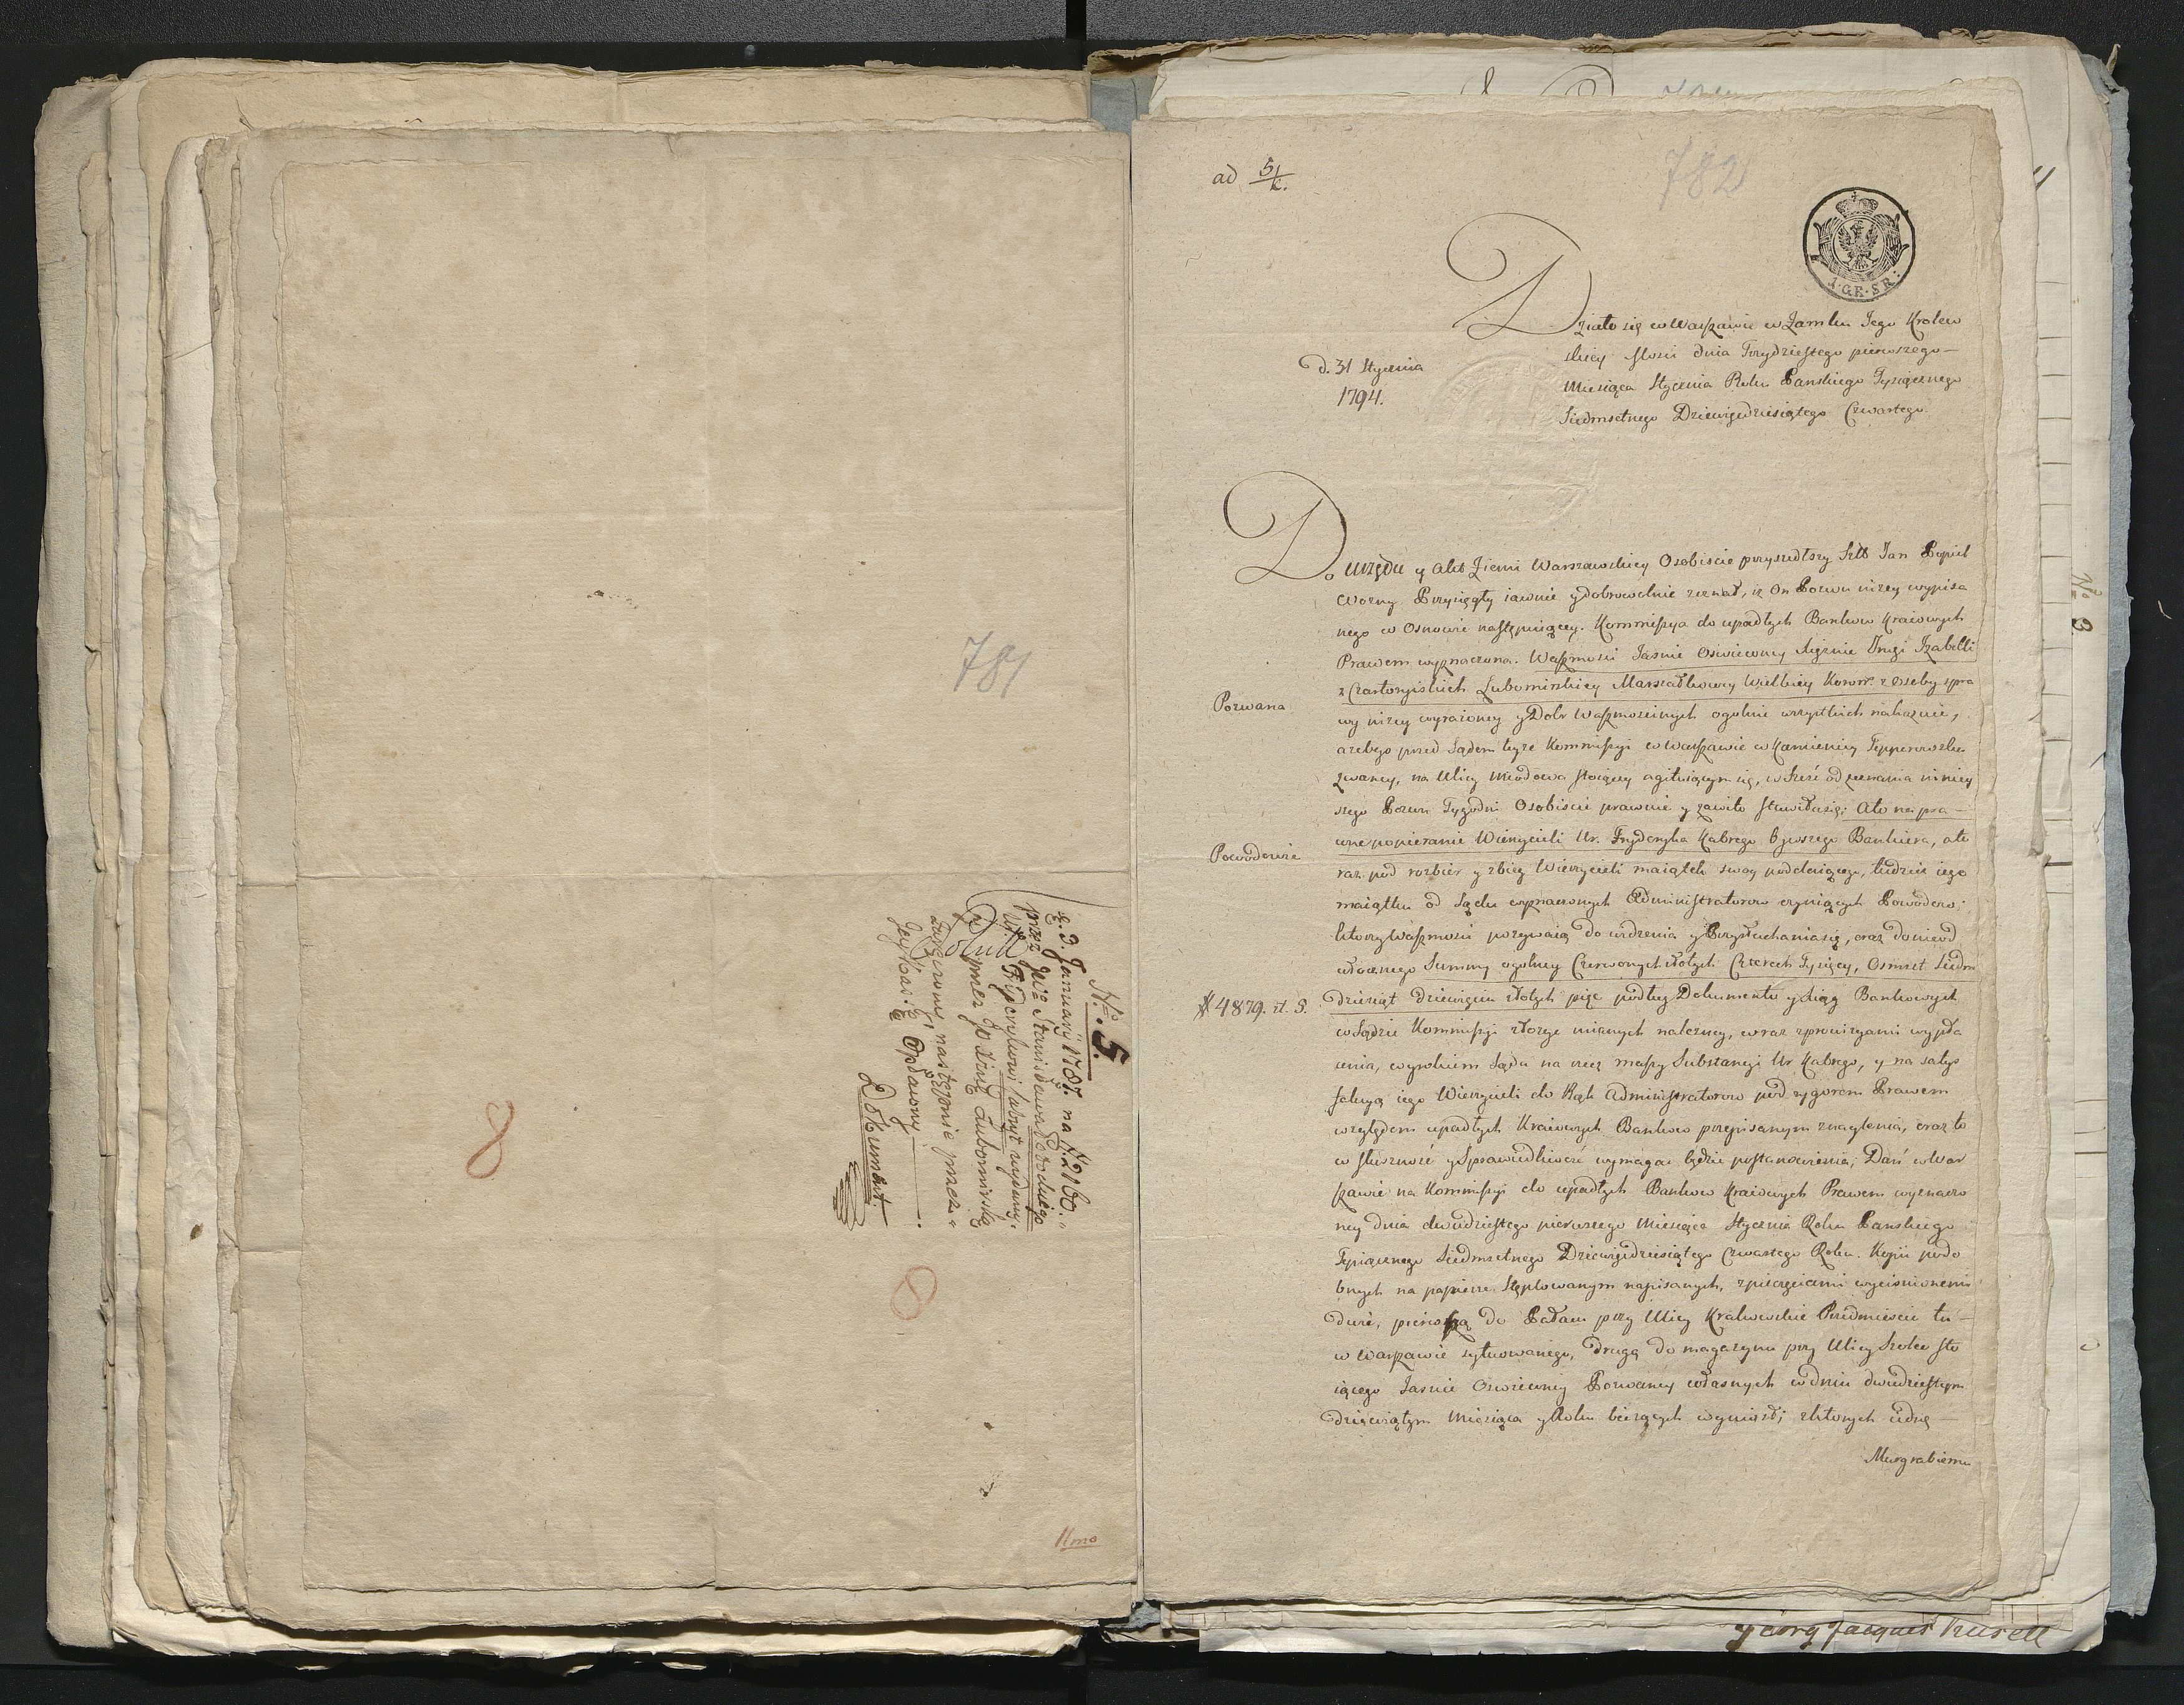 781
N<u>o</u> 5.
d. 3. January 1787. na # 2160.
przez JWo Stanisława Potockiego
Ur. Fryderykowi Kabryt wydany,
przez JO. Xżnę Lubomirską
następnie przez
Dokument
8
0
1mo
ad 5/c.
782
d. 31 Stycznia
1794.
Działo się w Warszawie w Zamku Jego Krolew
skiey Mości dnia Trzydziestego pierwszego
Miesiąca Stycznia Roku Panskiego Tysiącznego
Siedmsetnego Dziewięćdziesiątego Czwartego.
Do urzędu y Akt Ziemi Warszawskiey Osobiscie przyszedłszy Szltt Jan Popiel
Wozny Przysięgły iawnie y dobrowolnie zeznał, iż On Pozwu niżey wypisa
nego w Osnowie następuiącey. Kommissya do upadłych Bankow Kraiowych
Prawem wyznaczona. Waszmosci Jasnie Oswieconey Xiężnie Jmsi Izabelli
z Czartoryiskich Lubomirskiey Marszałkowey Wielkiey Koron. z Osoby spra
Pozwana
wy niżey wyrażoney y Dobr Waszmoscinych ogolnie wszystkich nakazuie,
ażebyś przed Sądem teyże Kommissyi w Warszawie w Kamienicy Tepperowska
zwaney, na Ulicy Miodowa stoiącey agituiącym się, w sześć od zeznania niniey
szego Pozwu Tygodni Osobiscie prawnie y zawito stawiła się; A to na pra
Powodowie
wne popieranie Wierzycieli Ur. Fryderyka Kabrego bywszego Bankiera, a te
raz pod rozbior y zbieg Wierzycieli maiątek swoy poddaiącego, tudzież iego
maiątku od Sądu wyznaczonych Administratorow czyniących Powodow;
ktorzy Waszmość pozywaią do widzenia y Przysłuchania się, oraz do nieod
włocznego Summy ogolney Czerwonych złotych Czterech Tysięcy, Osmset Siedm
# 4879. zł. 5.
dziesiąt dziewięciu złotych pięć podług Dokumentu y Xiąg Bankowych
w Sądzie Kommissyi złożyć mianych należney, wraz z prowizyami wypła
cenia, wyrokiem Sądu na rzecz massy Substancyi Ur Kabrego, y na satys
fakcyą iego Wierzycieli do Rąk Administratorow pod rygorem Prawem
względem upadłych Kraiowych Bankow przepisanym znaglenia, oraz to
co słuszność y Sprawiedliwość wymagać będzie postanowienia; Dań w War
szawie na Kommissyi do upadłych Bankow Kraiowych Prawem wyznaczo
ney dnia dwudziestego pierwszego Miesiąca Stycznia Roku Panskiego
Tysiącznego Siedmsetnego Dziewięćdziesiątego Czwartego Roku. Kopii podo
bnych na papierze Stęplowanym napisanych, z pieczęciami wycisnionemi
dwie, pierwszą do Pałacu przy Ulicy Krakowskie Przedmieście tu
w Warszawie sytuowanego, drugą do magazynu przy Ulicy Solec sto
iącego Jasnie Oswieconey Pozwaney własnych w dniu dwudziestym
dziewiątym Miesiąca y Roku bieżących wyniosł; z ktorych iednę
Murgrabiemu
No 3
Georg Jacques